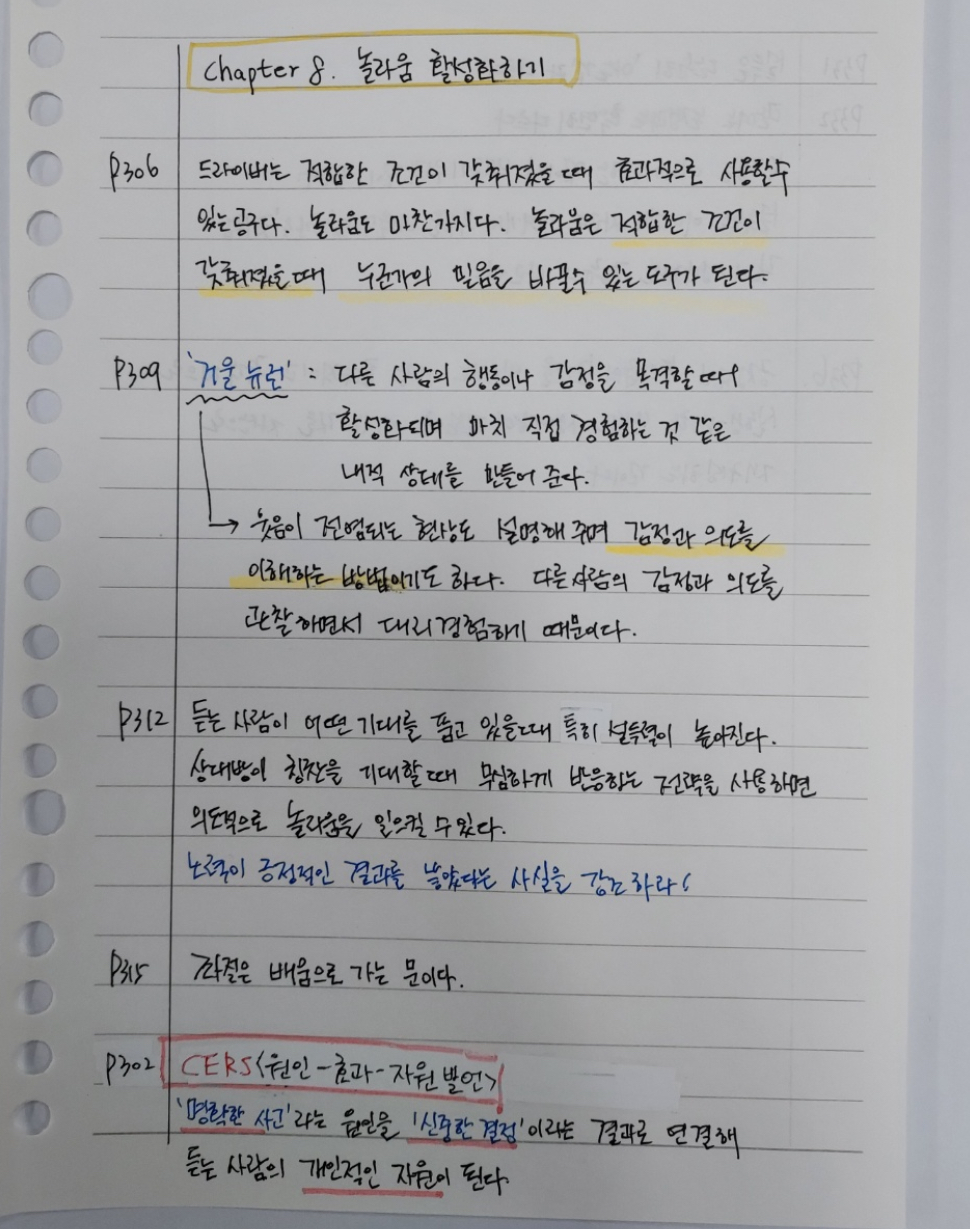 Chapter 8. 놀라움 활성화하기
P306 드라이버는 적합한 조건이 갖춰졌을 때 효과적으로 사용할수
있는공구다. 놀라움도 마찬가지다. 놀라움은 적합한 조건이
갖춰졌을때 누군가의 믿음을 바꿀수 있는 도구가 된다.
P309 '거울 뉴런' : 다른 사람의 행동이나 감정을 목격할때
활성화되며 마치 직접 경험하는 것 같은
내적 상태를 만들어 준다.
→ 웃음이 전염되는 현상도 설명해 주며 감정과 의도를
이해하는 방법이기도 하다. 다른사람의 감정과 의도를
관찰하면서 대리경험하기 때문이다.
P312 듣는 사람이 어떤 기대를 품고 있을때 특히 설득력이 높아진다.
상대방이 칭찬을 기대할때 무심하게 반응하는 전략을 사용하면
의도적으로 놀라움을 일으킬 수 있다.
노력이 긍정적인 결과를 낳았다는 사실을 강조하라!
P315 좌절은 배움으로 가는 문이다.
P302 CERS<원인-효과-자원 발언>
'명확한 사고'라는 원인을 '신중한 결정'이라는 결과로 연결해
듣는 사람의 개인적인 자원이 된다